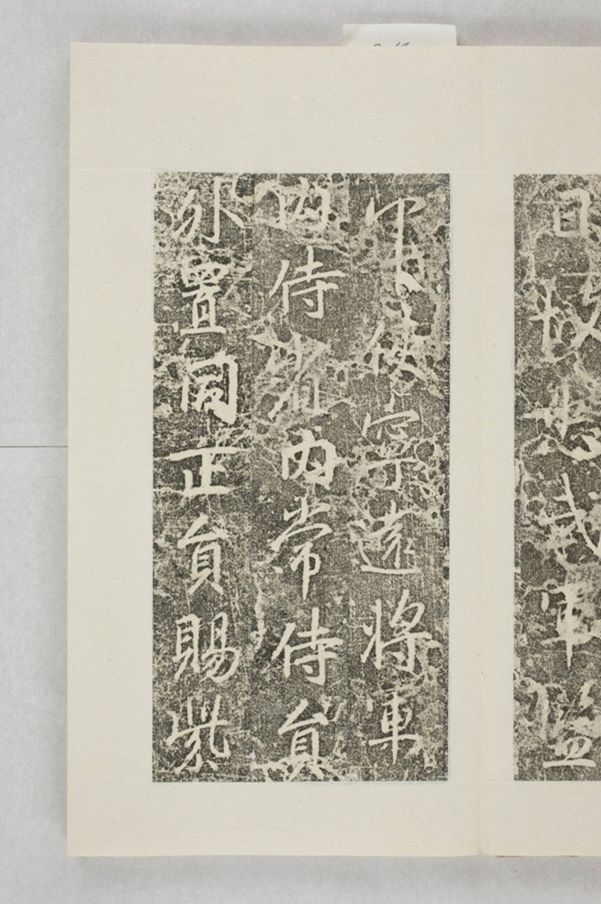 日故忠武軍監
軍使寧遠將軍
內侍省內常侍員
外置同正員賜紫